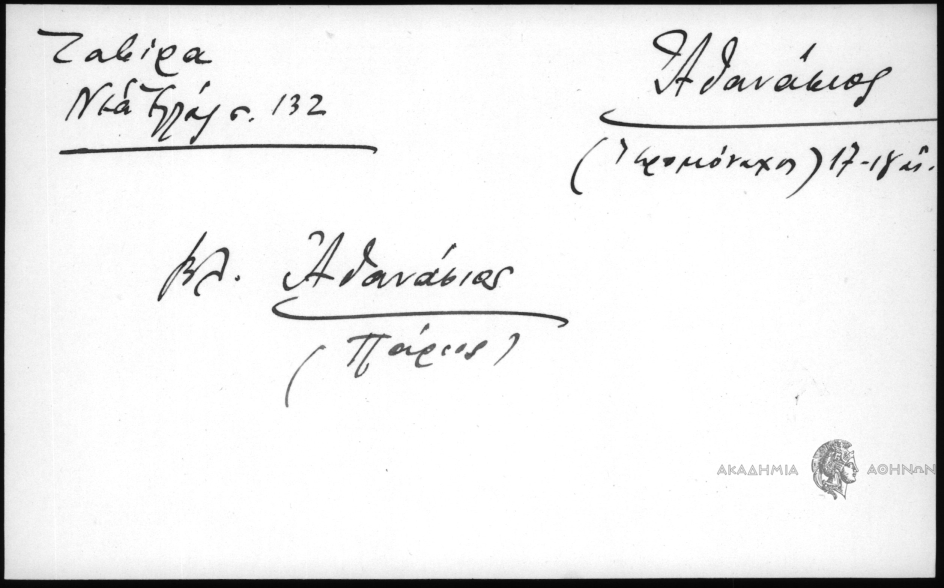 Ζαβίρα
Νέα Ἑλλάς σ. 132
Ἀθανάσιος
(Ἱερομόναχος) 17-18 αἰ.
βλ. Ἀθανάσιος
(Πάριος)
ΑΚΑΔΗΜΙΑ ΑΘΗΝΩΝ